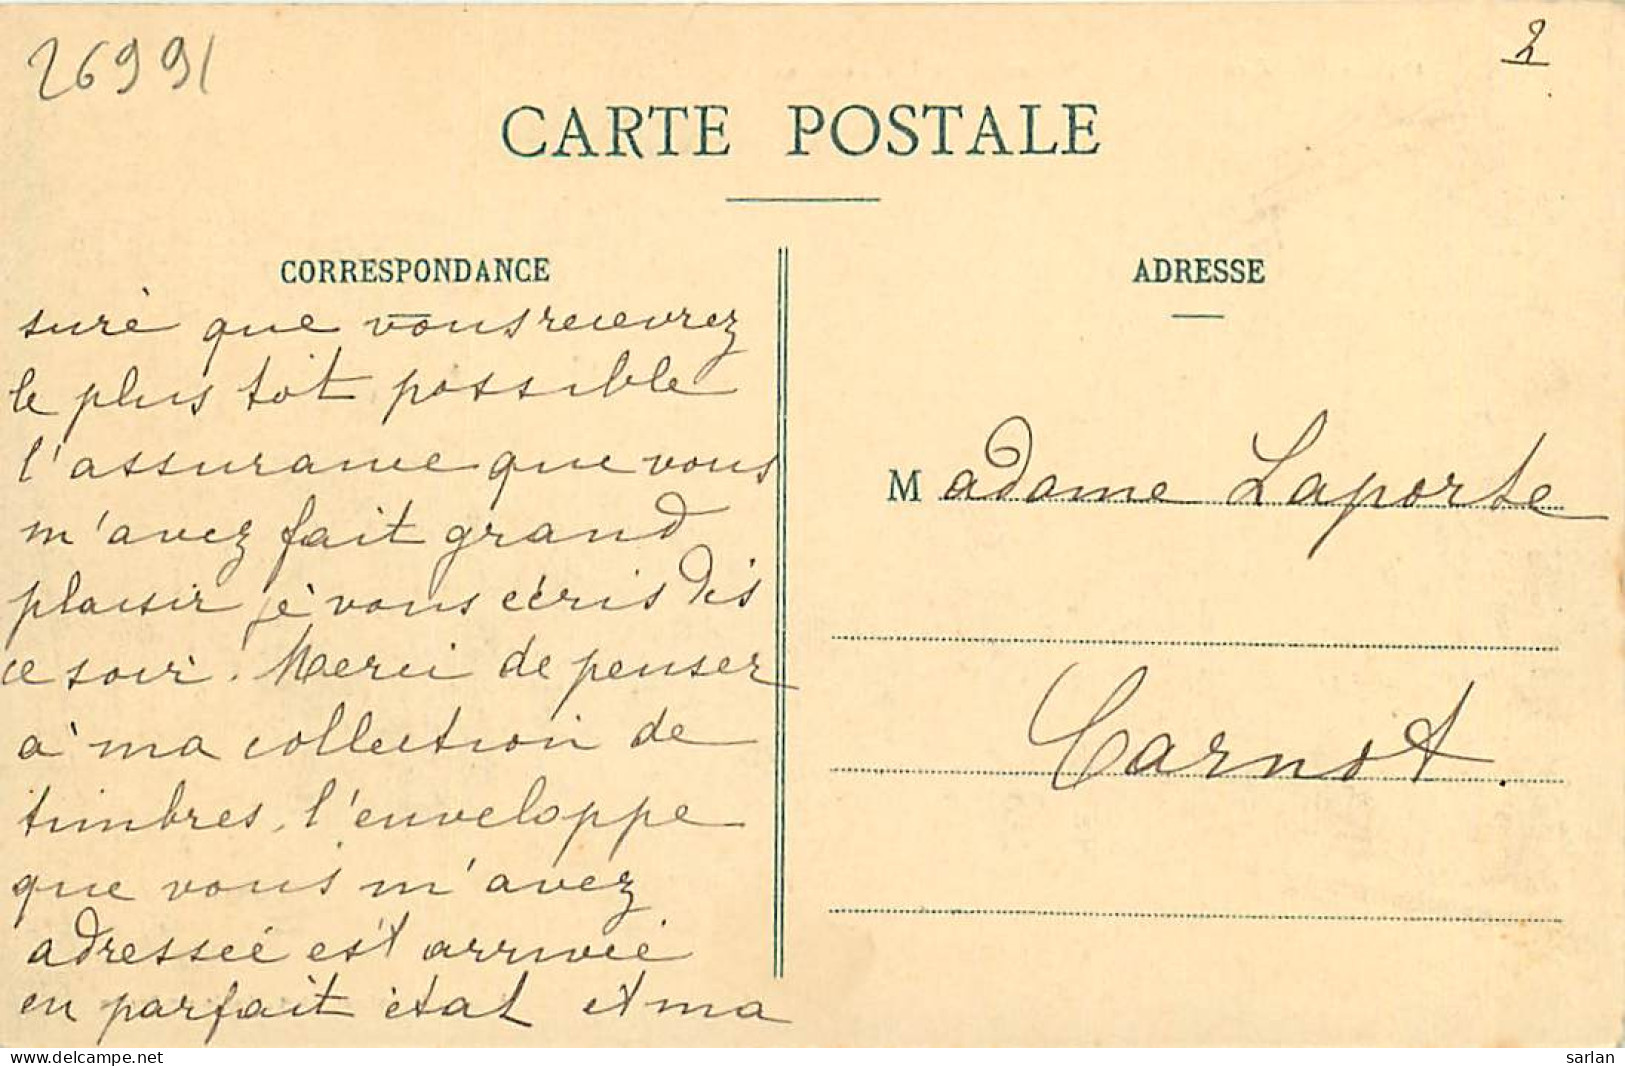 26991
2
CARTE POSTALE
CORRESPONDANCE
ADRESSE
suré que vous recevrez
le plus tôt possible
l'assurance que vous
m'avez fait grand
plaisir je vous écris dis
ce soir. Merci de penser
à ma collection de
timbres, l'enveloppe
que vous m'avez
adressée est arrivée
en parfait état et ma
Madame Laporte
Carnot.
delcampe.net
sarlan